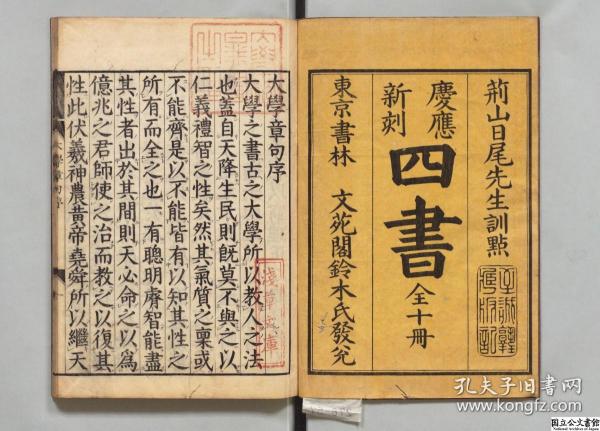 荊山日尾先生訓點
慶應
新刻
四書
全十冊
東京書林 文苑閣鈴木氏發兌
大學章句序
大學之書古之大學所以教人之法
也蓋自天降生民則既莫不與之以
仁義禮智之性矣然其氣質之稟或
不能齊是以不能皆有以知其性之
所有而全之也一有聰明睿智能盡
其性者出於其間則天必命之以爲
億兆之君師使之治而教之以復其
性此伏羲神農黃帝堯舜所以繼天
大學章句序
淺草文庫
孔夫子旧書网
www.kongfz.com
国立公文書館
National Archives of Japan